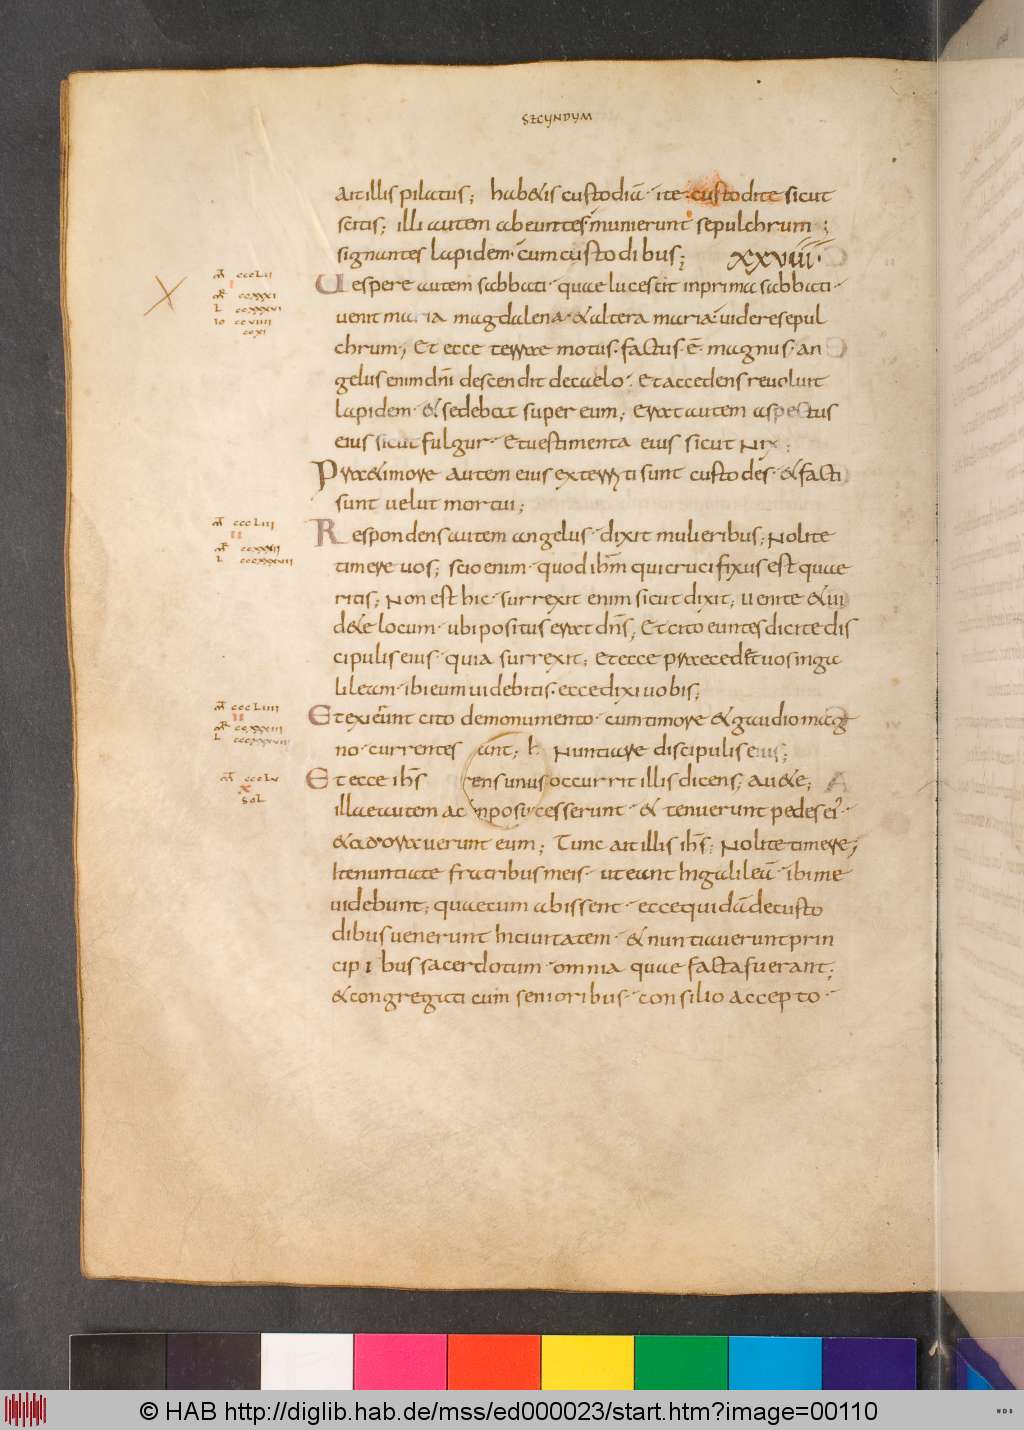 SECUNDUM
Ait illis pilatus; habetis custodiā· ite custodite sicut
scitis; illi autem abeuntes munierunt sepulchrum;
signantes lapidem· cum custodibus;
XXVIII·
Uespere autem sabbati· quae lucescit in prima sabbati·
venit maria magdalena· & altera maria· videre sepul
chrum; Et ecce terrae motus· factus· ē· magnus· an
gelus enim dn̄i descendit de caelo· Et accedens revoluit
lapidem· & sedebat super eum; erat autem aspectus
eius sicut fulgur· Et vestimenta eius sicut nix;
Prae timore autem eius exterriti sunt custodes· & facti
sunt velut mortui;
Respondens autem angelus· dixit mulieribus; Nolite
timere vos; scio enim· quod ihm̄ qui crucifixus est quae
ritis; Non est hic· surrexit enim sicut dixit; venite & vi
d&e locum· ubi positus erat dn̄s; Et cito euntes dicite dis
cipulis eius· quia surrexit; et ecce praecedet vos in ga
lileam· ibi eum videbitis· ecce dixi vobis;
Et exierunt cito de monumento· cum timore & gaudio mag
no· currentes nuntiare discipulis eius;
Et ecce ih̄s occurrit illis dicens; av&e;
illae autem accesserunt· & tenuerunt pedes ei'·
& adoraverunt eum; Tunc ait illis ih̄s; Nolite timere;
Ite nuntiate fratribus meis· ut eant in galileā· ibi me
videbunt; quae cum abissent· ecce quidā de custo
dibus venerunt in civitatem· & nuntiaverunt prin
cipibus sacerdotum· omnia quae facta fuerant;
& congregati cum senioribus· consilio accepto·
m̄ cccLII
mr̄ ccxxxi
L cccxxxvi
io ccviiii
ccxi
m̄ cccLIII
II
mr̄ ccxxxii
L cccxxxvii
m̄ cccLIIII
II
mr̄ ccxxxiii
m̄ cccLv
x
SOL
© HAB http://diglib.hab.de/mss/ed000023/start.htm?image=00110